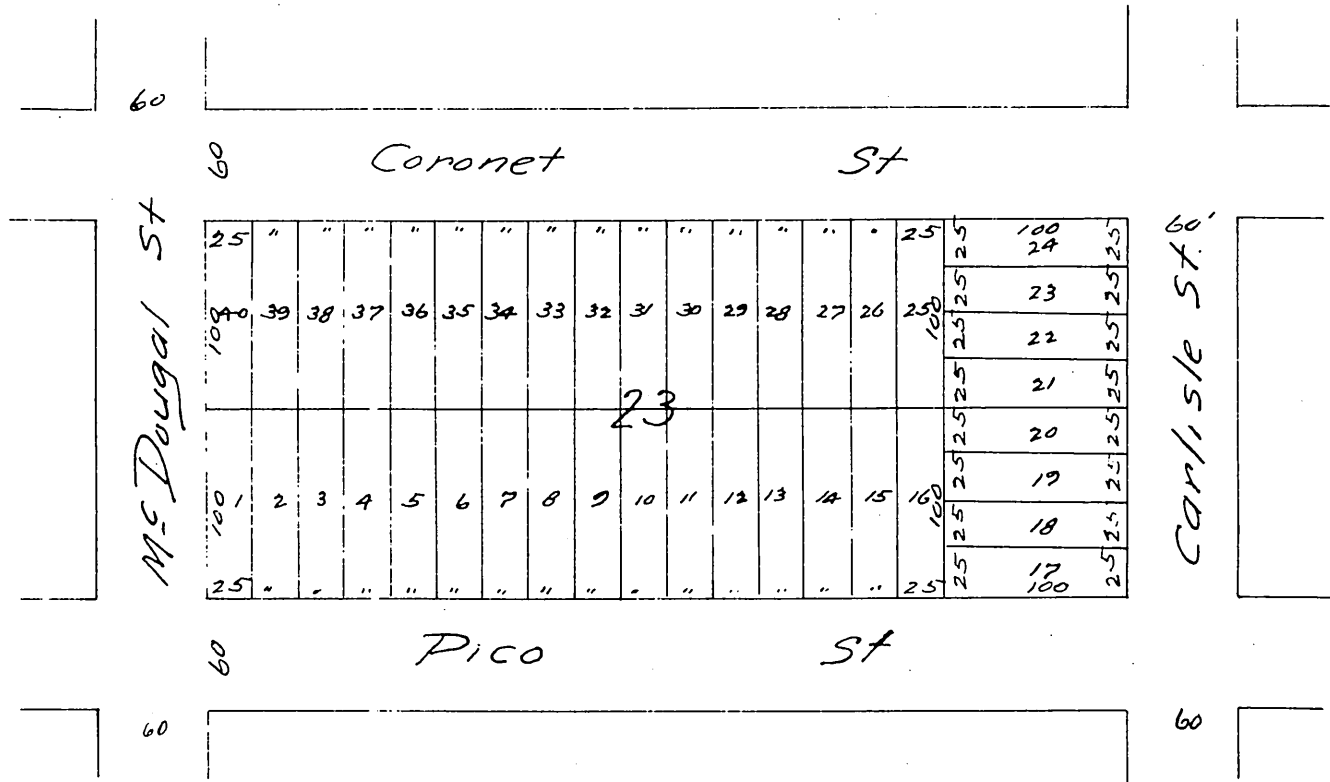 60
60 Coronet St
Mc Dougal St
Carlisle St.
60'
25 " " " " " " " " " " " " " " 25
100 40 39 38 37 36 35 34 33 32 31 30 29 28 27 26 25 100
23
100 1 2 3 4 5 6 7 8 9 10 11 12 13 14 15 16 100
25 " " " " " " " " " " " " " " 25
25 100 25
24
25 23 25
25 22 25
25 21 25
25 20 25
25 19 25
25 18 25
25 17 25
100
60 Pico St
60
60